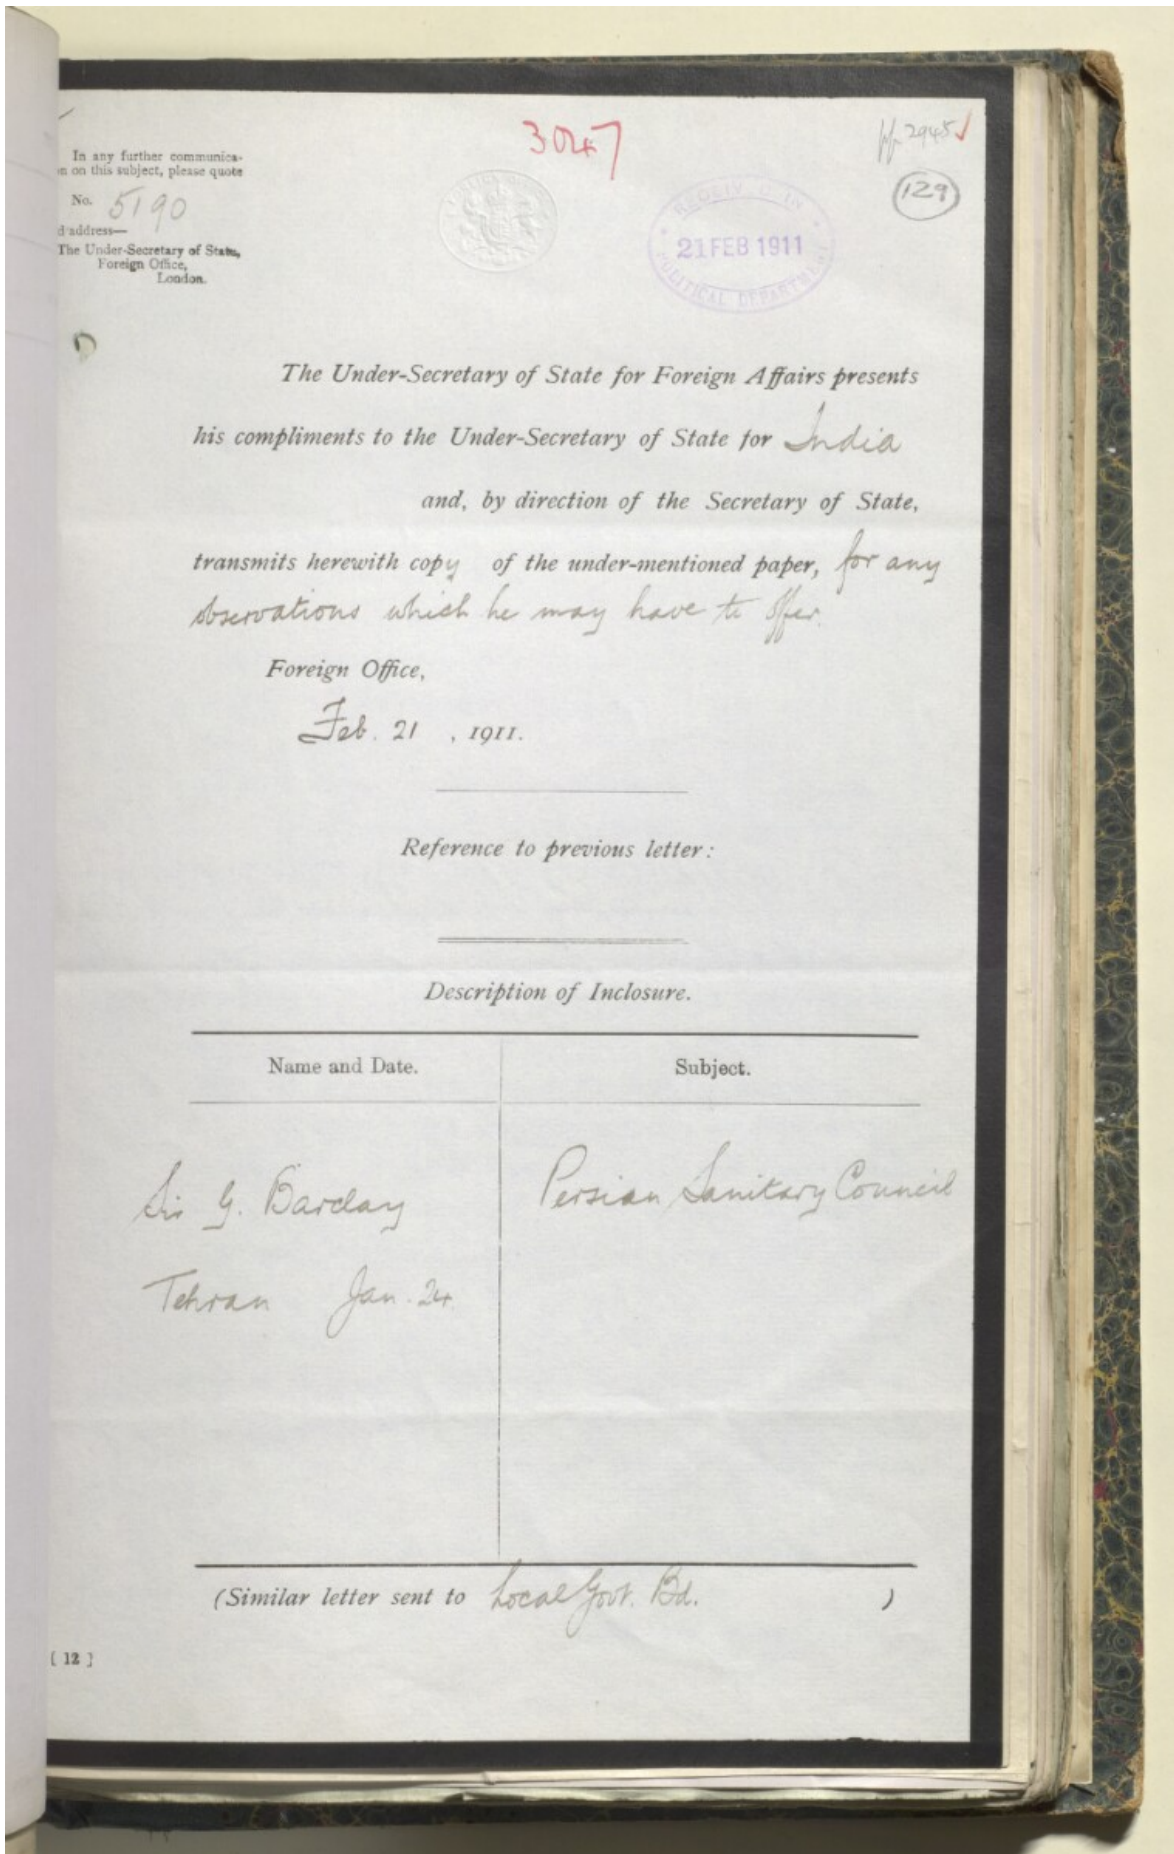 In any further communica-
n on this subject, please quote
No. 5190
d address—
The Under-Secretary of State,
Foreign Office,
London.
3047
2945
129
RECEIVED IN
21 FEB 1911
POLITICAL DEPARTMENT
The Under-Secretary of State for Foreign Affairs presents
his compliments to the Under-Secretary of State for India
and, by direction of the Secretary of State,
transmits herewith copy of the under-mentioned paper, for any
observations which he may have to offer.
Foreign Office,
Feb. 21 , 1911.
Reference to previous letter:
Description of Inclosure.
Name and Date.
Subject.
Sir G. Barclay
Tehran Jan. 24.
Persian Sanitary Council
(Similar letter sent to Local Govt. Bd. )
[ 12 ]